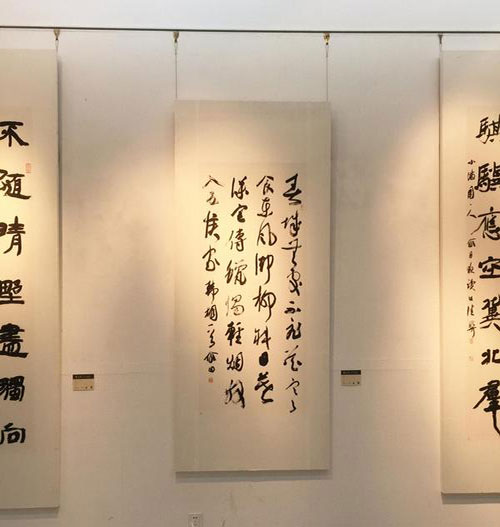 騏驥應空冀北羣
春城無處不飛花寒
食東風御柳斜日暮
漢宮傳蠟燭輕煙散
入五侯家 韓翃
不隨晴野盡獨向